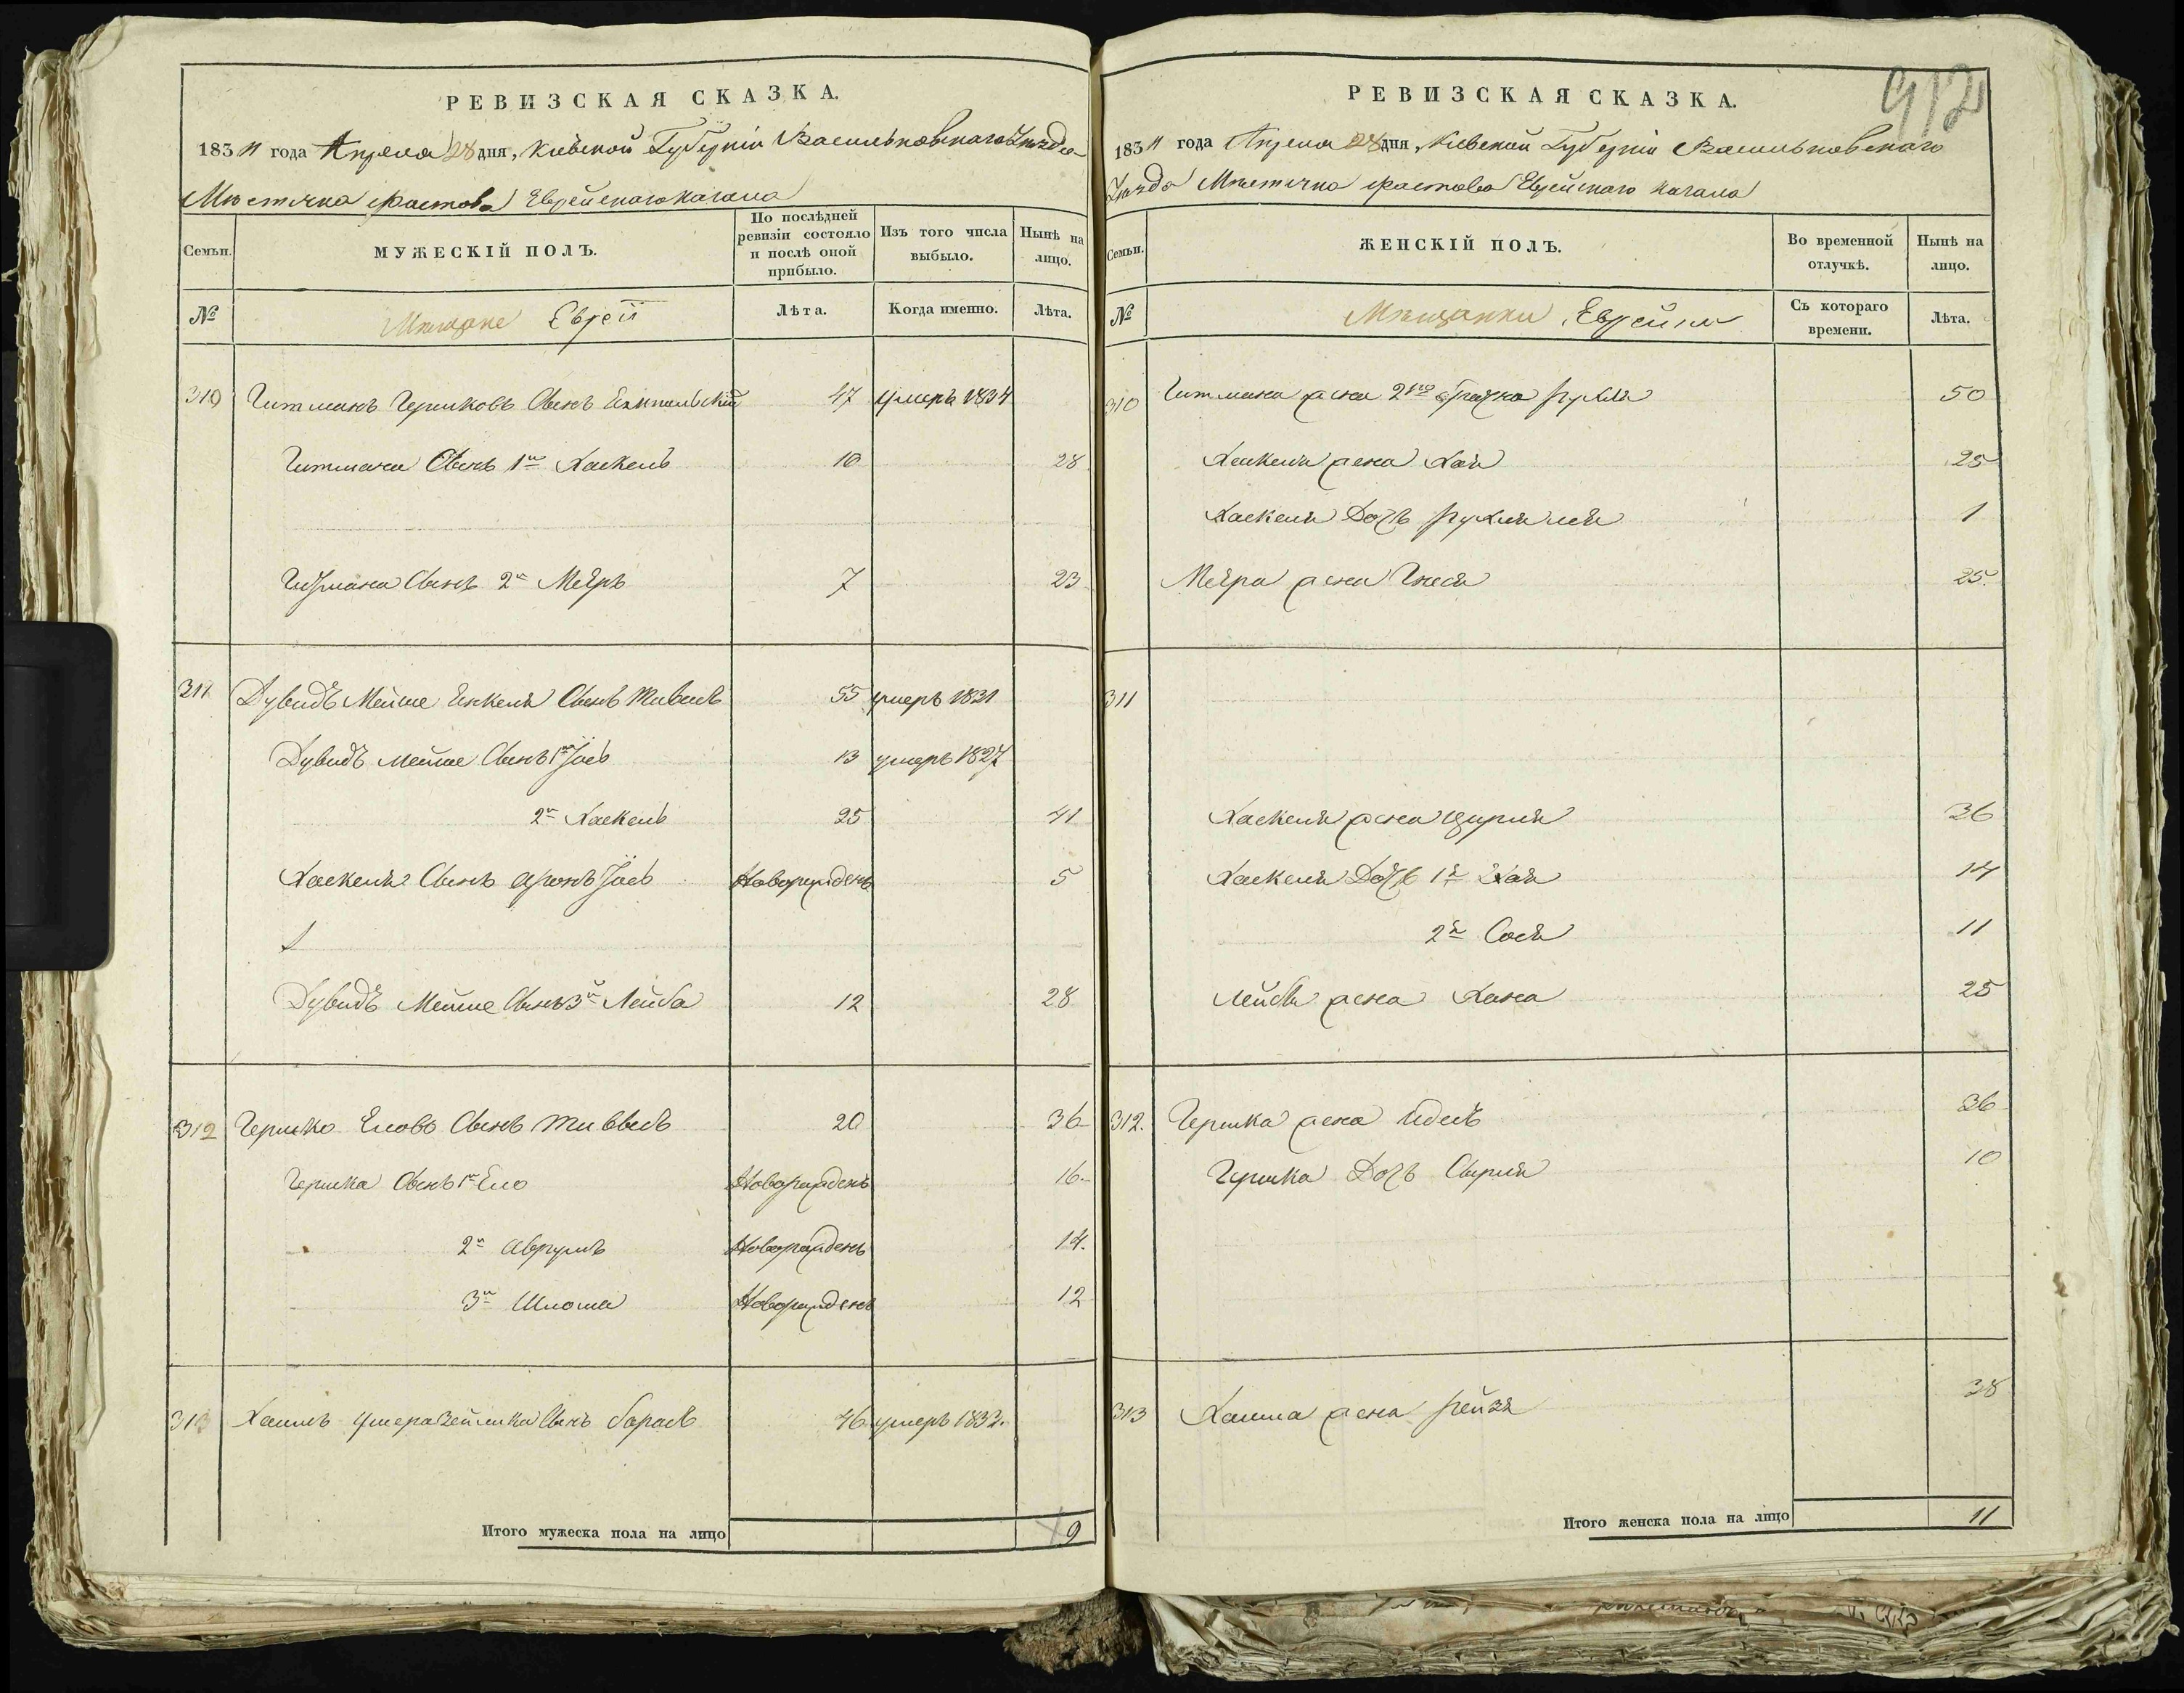 912
РЕВИЗСКАЯ СКАЗКА.
1834 года Апреля 28 дня, Кіевской Губерніи Васильковскаго Уезда
Мѣстечка Фастова Еврейскаго кагала
Семьи.
МУЖЕСКІЙ ПОЛЪ.
По послѣдней ревизіи состояло и послѣ оной прибыло.
Изъ того числа выбыло.
Нынѣ на лицо.
№
Мещане Евреи
Лѣта.
Когда именно.
Лѣта.
310 Гитманъ Гершковъ Сынъ 47 умеръ 1834
Гитмана Сынъ 1й Хаскель 10 28
Гитмана Сынъ 2й Меѣръ 7 23
311 Дувидъ Мейше Енкеля Сынъ 55 умеръ 1831
Дувидъ Мейше Сынъ 1й 13 умеръ 1827
2й Хаскель 25 41
Хаскеля Сынъ Аронъ Новорожденъ 5
Дувидъ Мейше Сынъ 3й Лейба 12 28
312 Гершко Сынъ 20 36
Гершка Сынъ 1й Новорожденъ 16
2й Аврумъ Новорожденъ 14.
3й Шлома Новорожденъ 12
313 Хаимъ Сынъ 46 умеръ 1833.
Итого мужеска пола на лицо 9
РЕВИЗСКАЯ СКАЗКА.
1834 года Апреля 28 дня, Кіевской Губерніи Васильковскаго
Уезда Мѣстечка Фастова Еврейскаго кагала
Семьи.
ЖЕНСКІЙ ПОЛЪ.
Во временной отлучкѣ.
Нынѣ на лицо.
№
Мещанки Еврейки
Съ котораго времени.
Лѣта.
310 Гитмана жена 2го брачка Рухля 50
Хаскеля жена Хая 25
Хаскеля Дочь Рухля 1
Меѣра жена Гнеся 25.
311
Хаскеля жена Цирля 36
Хаскеля Дочь 1я Хая 14
2я Сося 11
Лейбы жена Хана 25
312. Гершка жена 36
Гершка Дочь Сирля 10
313 Хаима жена Рейзя 38
Итого женска пола на лицо 11